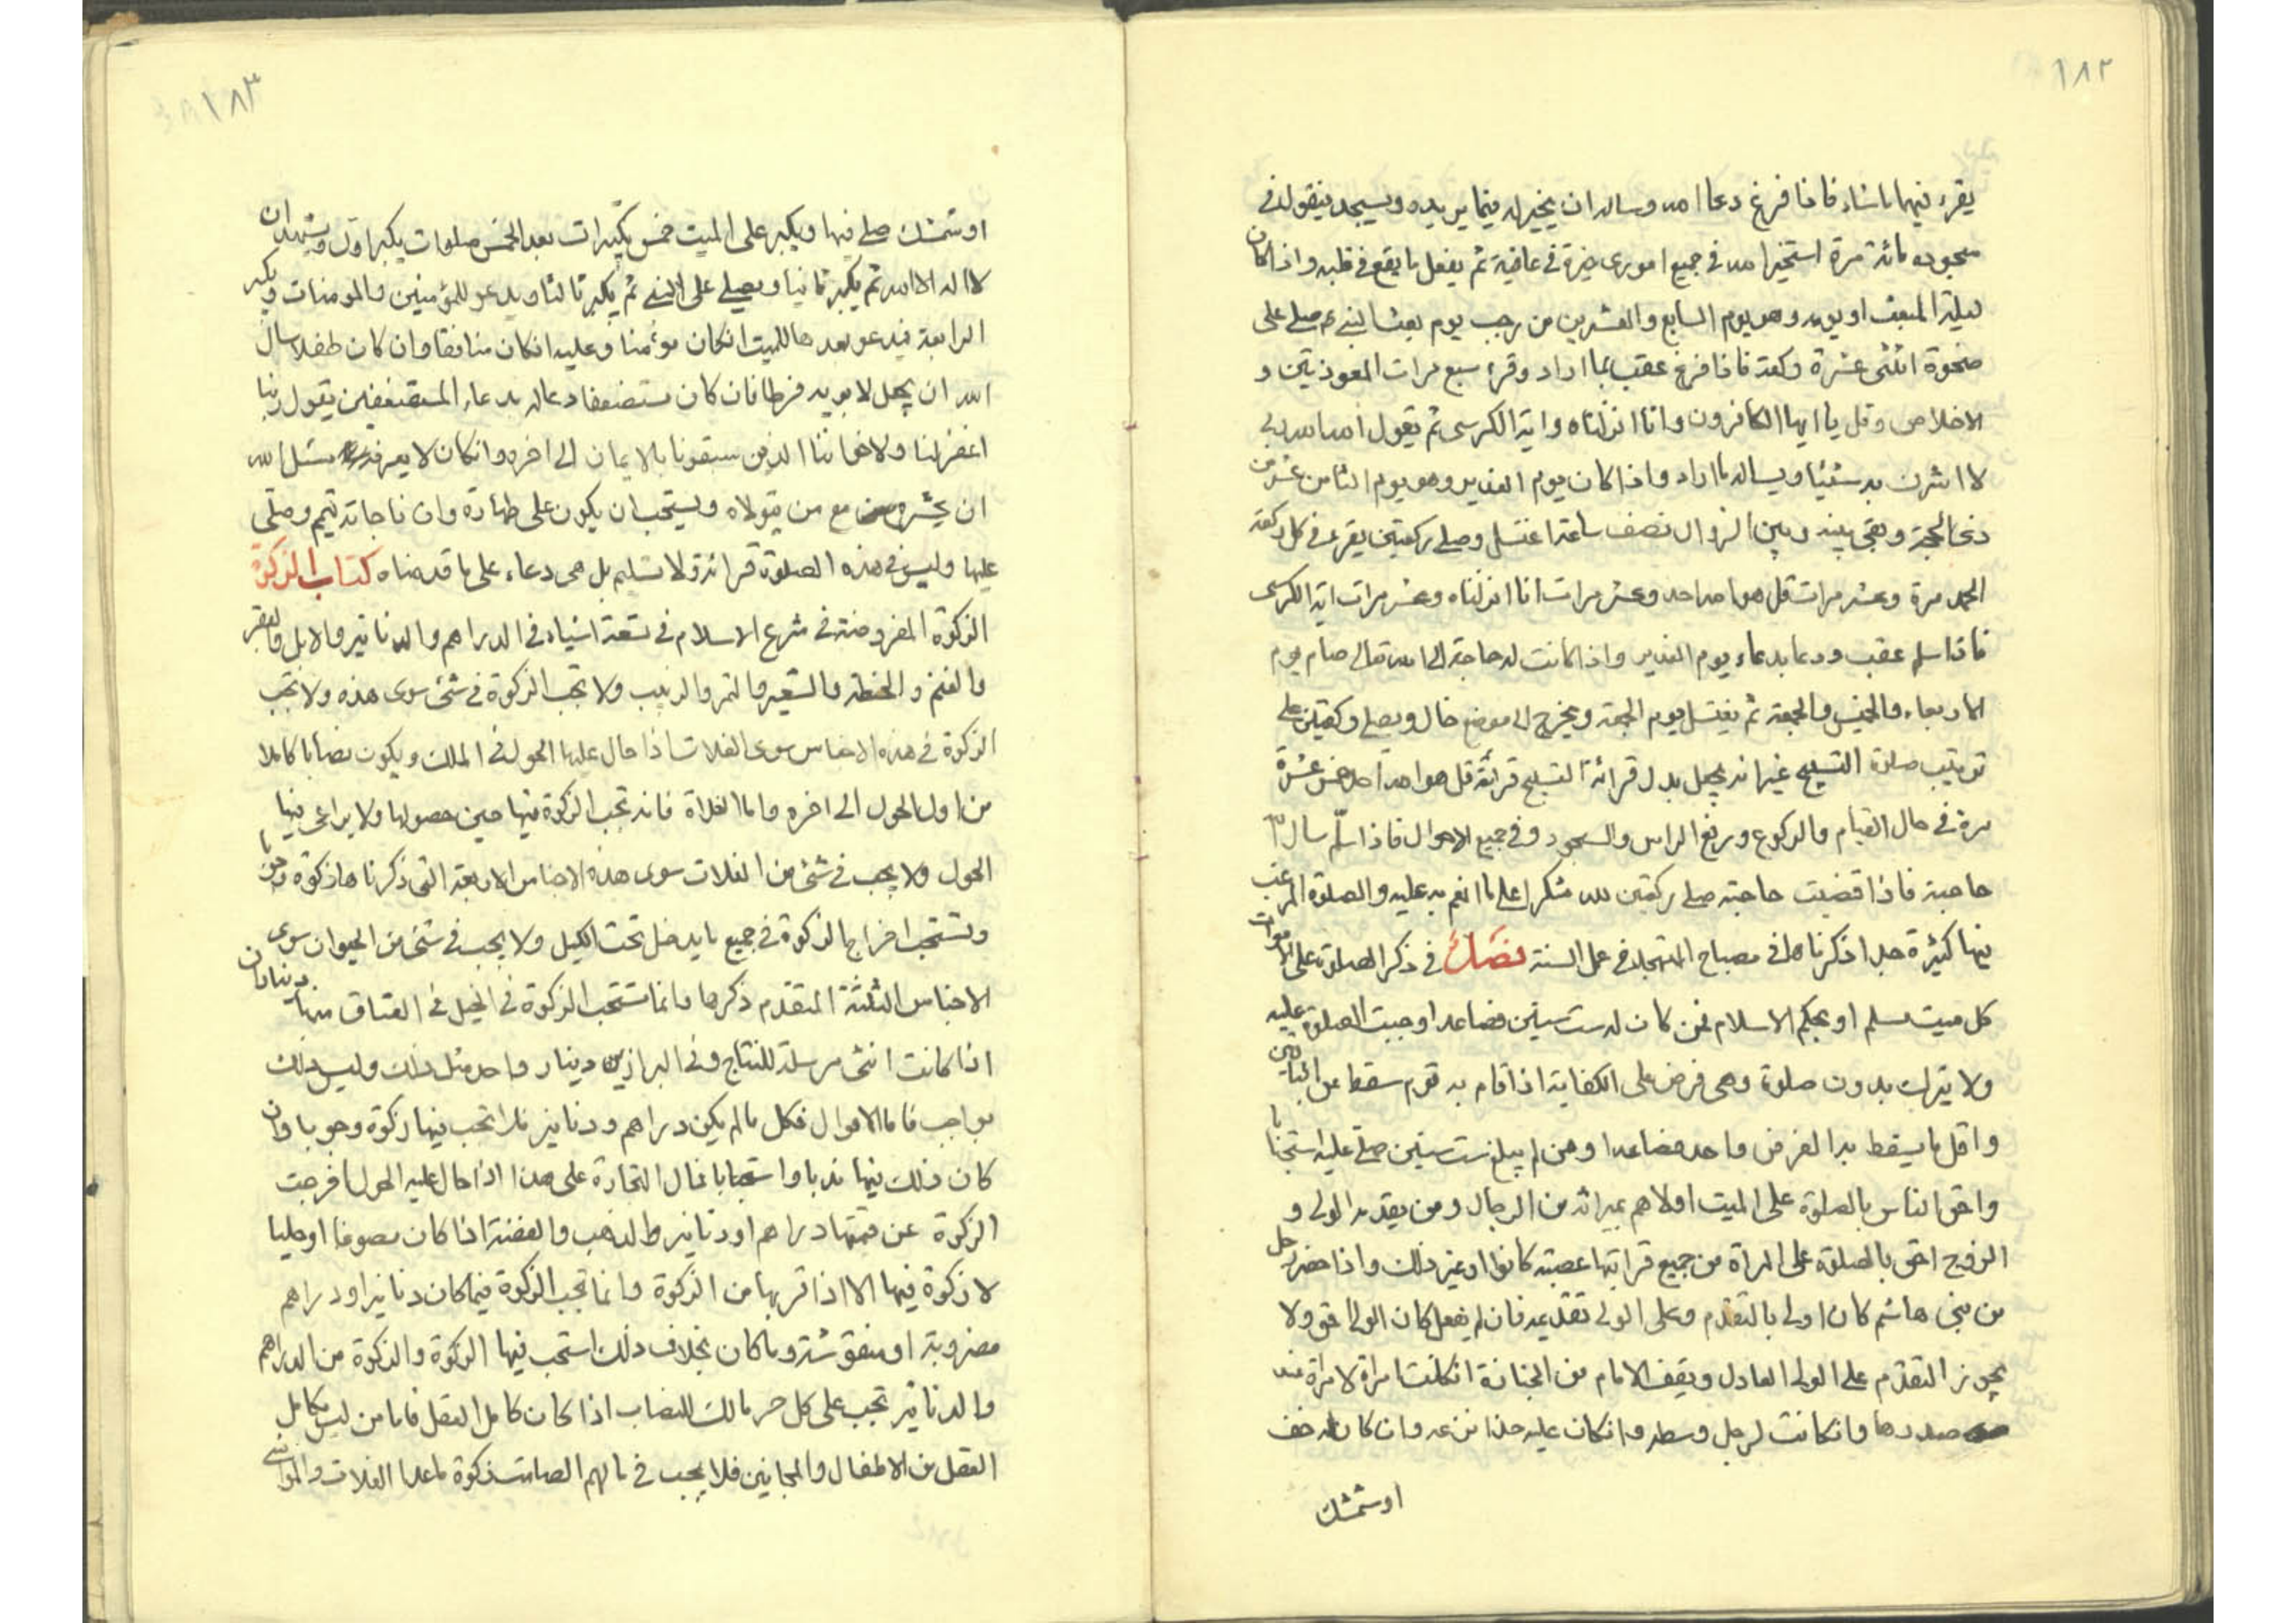 ١٨٢
يقرء فيهما ماشاء فاذا فرغ دعا الله وساله ان يخير له فيما يريده ويسجد فيقول في
سجوده مائة مرة استخير الله في جميع اموري خيرة في عافية ثم يفعل ما يقع في قلبه واذا كان
ليلة المبعث او يومه وهو يوم السابع والعشرين من رجب يوم بعث النبي ص صلى على
ضحوة اثنتى عشرة ركعة فاذا فرغ عقب بما اراد وقرء سبع مرات المعوذتين و
الاخلاص وقل يا ايها الكافرون وانا انزلناه واية الكرسى ثم يقول الله الله ربى
لا اشرك به شيئا ويساله ما اراد واذا كان يوم الغدير وهو يوم الثامن عشر من
ذى الحجة وبقى بينه وبين الزوال نصف ساعة اغتسل وصلى ركعتين يقرء في كل ركعة
الحمد مرة وعشر مرات قل هو الله احد وعشر مرات انا انزلناه وعشر مرات اية الكرسى
فاذا سلم عقب ودعا بدعاء يوم الغدير واذا كانت له حاجة الى الله تعالى صام يوم
الاربعاء والخميس والجمعة ثم يغتسل يوم الجمعة ويخرج الى موضع خال ويصلى ركعتين على
ترتيب صلاة التسبيح غير انه يجعل بدل قرائة التسبيح قرائة قل هو الله احد خمس عشرة
مرة في حال القيام والركوع ورفع الراس والسجود وفي جميع الاحوال فاذا سلّم سال الله
حاجته فاذا قضيت حاجته صلى ركعتين لله شكرا على ما انعم به عليه والصلوة المرغب
فيها كثيرة جدا ذكرناها في مصباح المتهجد في عمل السنة فصل في ذكر الصلوة على الاموات
كل ميت مسلم او بحكم الاسلام ممن كان له ست سنين فصاعدا وجبت الصلوة عليه
ولا يترك بدون صلوة وهى فرض على الكفاية اذا قام به قوم سقط عن الباقين
واقل ما يسقط به الفرض واحد فصاعدا ومن لم يبلغ ست سنين صلى عليه استحبابا
واحق الناس بالصلوة على الميت اولاهم بميراثه من الرجال ومن يقدمه الولى و
الزوج احق بالصلوة على المراة من جميع قراباتها عصبته كانوا او غير ذلك واذا حضر رجل
من بنى هاشم كان اولى بالتقدم وعلى الولى تقديمه فان لم يفعل كان الولى احق ولا
يجوز التقدم على الولى العادل ويقف الامام من الجنازة ان كانت امراة لامراة عند
صدرها وان كانت لرجل وسطه وان كان عليه حذا نزعه وان كان له خف
او شمشك
١٨٣
او شمشك صلى فيها ويكبر على الميت خمس تكبيرات بعد الخمس صلوات يكبر اول ويشهد ان
لا اله الا الله ثم يكبر ثانيا ويصلى على النبى ثم يكبر ثالثا ويدعو للمؤمنين والمومنات ويكبر
الرابعة فيدعو بعدها للميت ان كان مؤمنا وعليه ان كان منافقا وان كان طفلا سال
الله ان يجعل لابويه فرطا فان كان مستضعفا دعا له بدعاء المستضعفين يقول ربنا
اغفر لنا ولاخواننا الذين سبقونا بالايمان الى اخره وان كان لا يعرفه سئل الله
ان يحشره مع من يتولاه ويستحب ان يكون على طهارة وان فاجاته تيمم وصلى
عليها وليس في هذه الصلوة قرائة ولا تسليم بل هى دعاء على ما قدمناه كتاب الزكوة
الزكوة المفروضة في شرع الاسلام في تسعة اشياء في الدراهم والدنانير والابل والبقر
والغنم والحنطة والشعير والتمر والزبيب ولا تجب الزكوة في شئ سوى هذه ولا تجب
الزكوة في هذه الاجناس سوى الغلات اذا حال عليها الحول في الملك ويكون نصابا كاملا
من اول الحول الى اخره واما الغلاة فانه تجب الزكوة فيها حين حصولها ولا يراعى فيها
الحول ولا يجب في شئ من الغلات سوى هذه الاجناس الاربعة التى ذكرناها زكوة
وتستحب اخراج الزكوة في جميع ما يدخل تحت الكيل ولا يجب في شئ من الحيوان سوى
الاجناس الثلثة المتقدم ذكرها وانما تستحب الزكوة في الخيل في العتاق منها ديناران
اذا كانت انثى مرسلة للنتاج وفي البراذين دينار واحد مثل ذلك وليس ذلك
بواجب فاما الاموال فكل ما لم يكن دراهم ودنانير فلا تجب فيها زكوة وجوبا وان
كان ذلك فيها ندبا واستحبابا فمال التجارة على هذا اذا حال عليه الحول اخرجت
الزكوة عن قيمتها دراهم او دنانير والذهب والفضة اذا كان مصوغا او حليا
لا زكوة فيها الا اذا فر بها من الزكوة وانما تجب الزكوة فيما كان دنانير او دراهم
مضروبة او منقوشة وما كان بخلاف ذلك استحب فيها الزكوة والزكوة من الدراهم
والدنانير تجب على كل حر مالك للنصاب اذا كان كامل العقل فاما من ليس بكامل
العقل من الاطفال والمجانين فلا يجب في مالهم الصامت زكوة ماعدا الغلات والمواشى